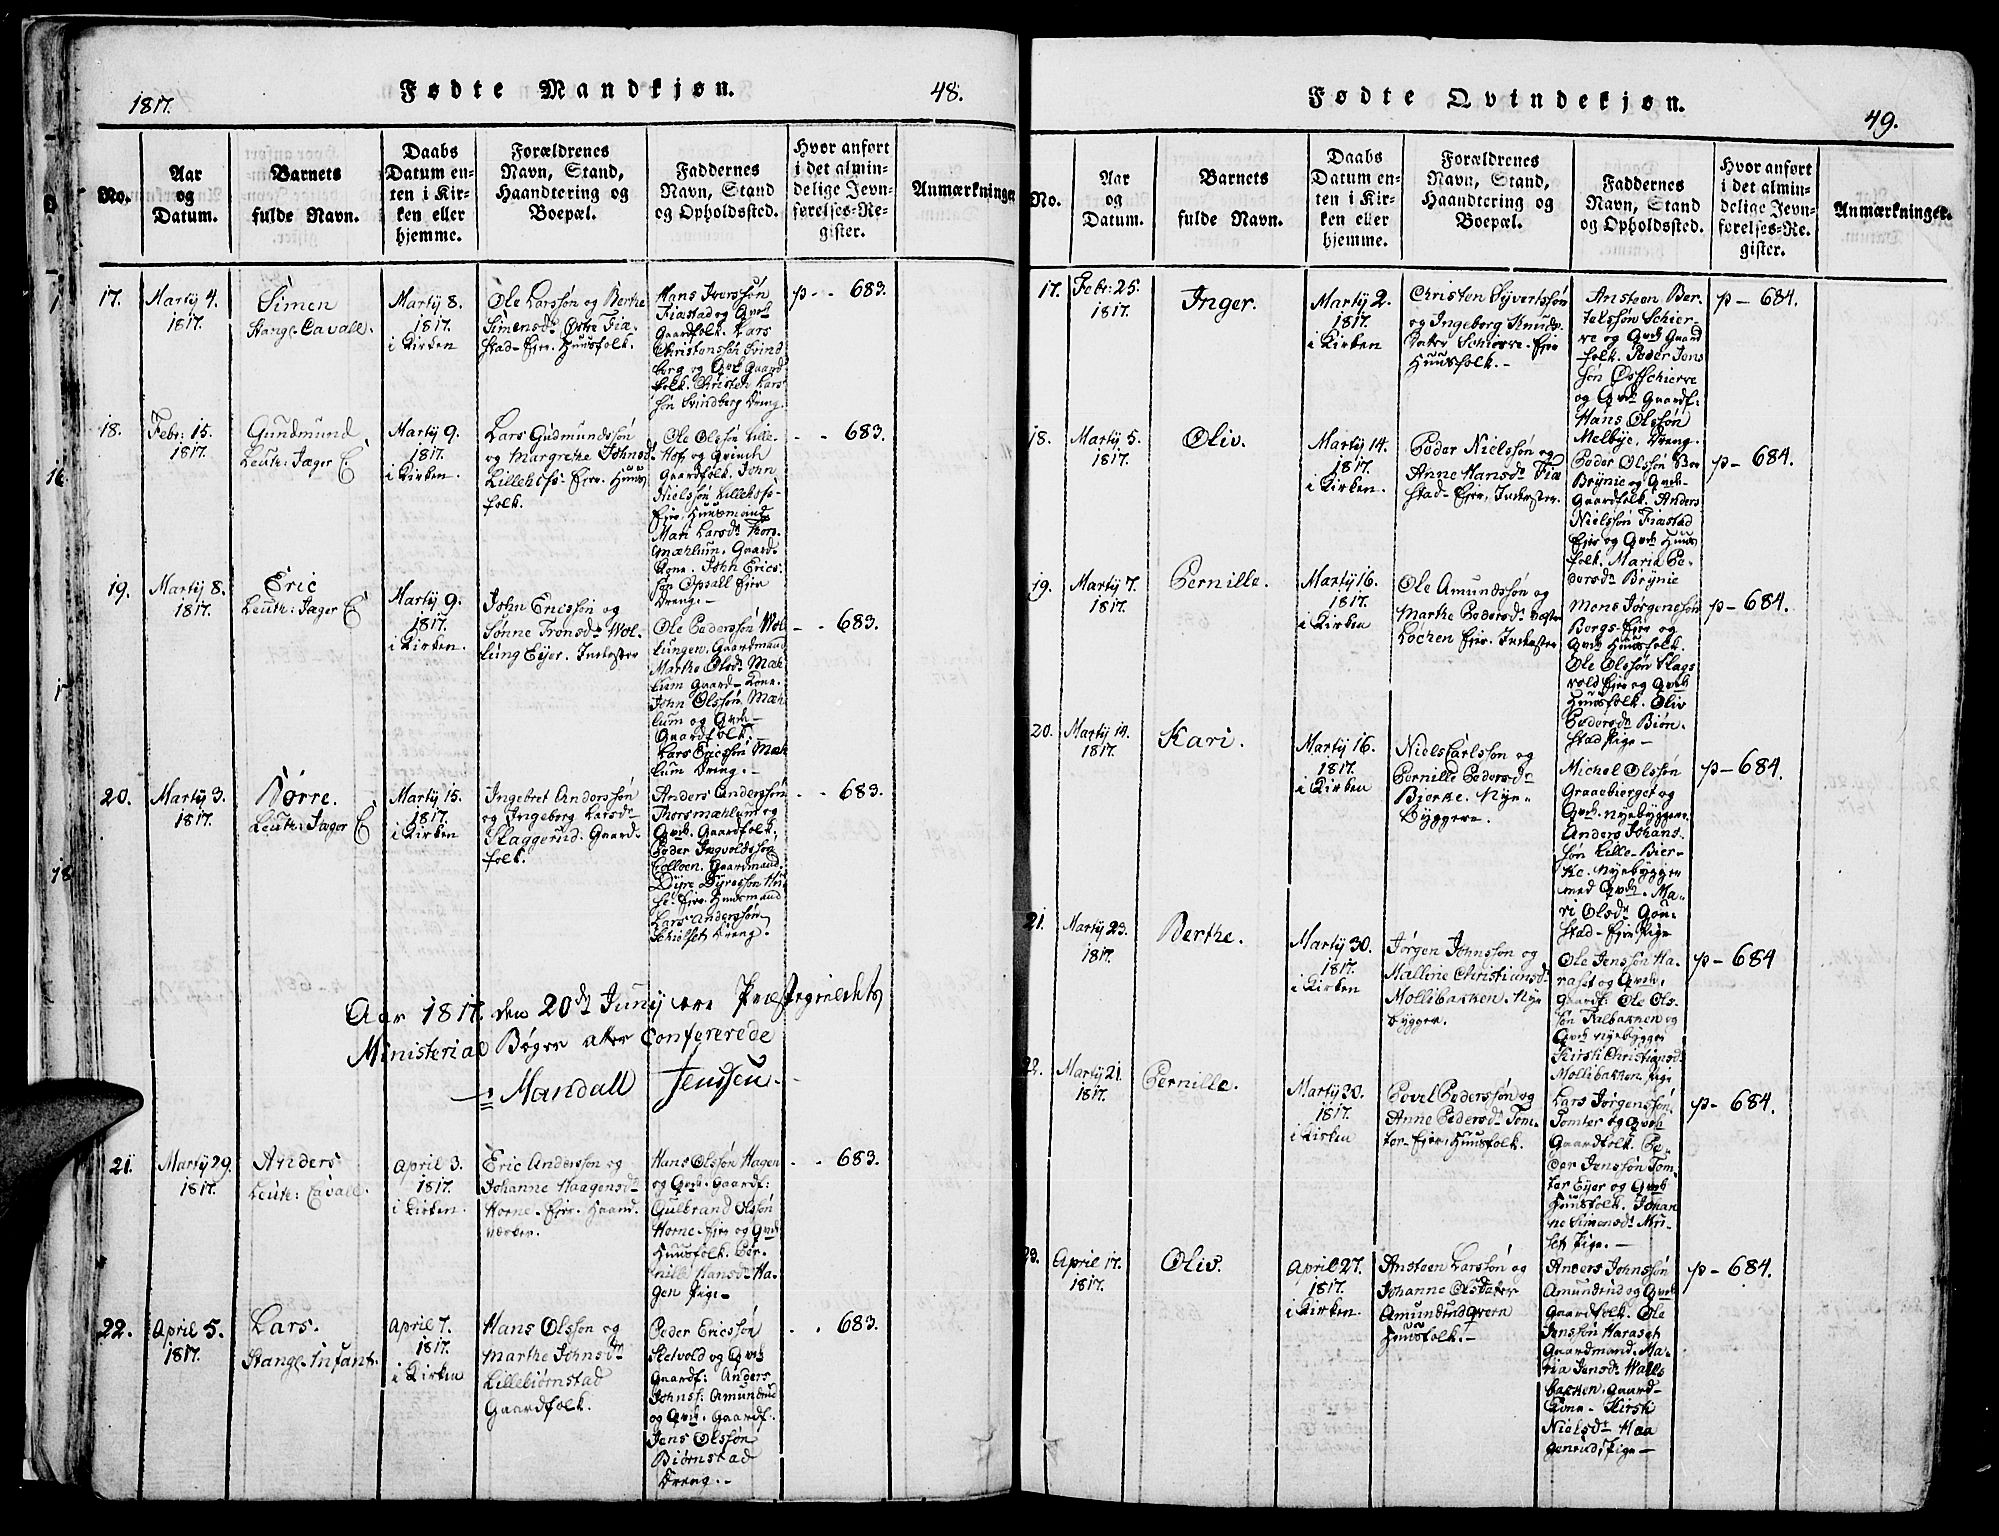 1817.
Fødte Mandkjøn.
48.
No.
Aar
og
Datum.
Barnets
fulde Navn.
Daabs
Datum en-
ten i Kir-
ken eller
hjemme.
Forældrenes
Navn, Stand,
Haandtering og
Boepæl.
Faddernes
Navn, Stand
og Opholdssted.
Hvor anført
i det almin-
delige Jevn-
førelses-Re-
gister.
Anmærkninger
17.
Martÿ 4.
1817.
Simen
Stange Cavall.
Martÿ 8.
1817.
i Kirken
Ole Larssøn og Berthe
Simensdr Østre Fia-
stad-Ejer. Huusfolk.
Hans Iverssøn
Fiastad og Qvinde
Gaardfolk. Lars
Christenssøn Svind
berg og Qvinde Gaard
folk. Christen Lars
søn Svindberg Dreng.
p - - 683.
18.
Febr: 15.
1817.
Gundmund
Leuth: Jæger C
Martÿ 9.
1817.
i Kirken.
Lars Gudmundssøn
og Margrethe Johnsdr
Lillehofs-Ejer. Huus
folk.
Ole Olssøn Lille-
Hof og Qvinde
Gaardfolk. John
Nielssøn Lillehofs-
Ejer. Huusmand
Mari Larsdr Thors-
mæhlum. Gaard-
Kone. John Erics-
søn Opsall Ejer
Dreng.-
- - 683.
19.
Martÿ 8.
1817.
Eric
Leuth: Jæger C
Martÿ 9.
1817.
i Kirken.
John Ericssøn og
Sønne Tronsdr Wol-
lung Eyer. Inderster
Ole Pederssøn Wol
lungen. Gaardmand
Marthe Olsdr Mæh-
lum Gaard-Kone.
John Olssøn Mæh
lum og Qvinde-
Gaardfolk.-
Lars Ericssøn Mæh
lum Dreng.-
- - 683.
20.
Martÿ 3.
1817.
Børre.
Leuth: Jæger C
Martÿ 15.
1817.
i Kirken
Ingebret Anderssøn
og Ingeborg Larsdr
Slaggerud. Gaard-
folk.
Anders Anderssøn
Thorsmæhlum og
Qvinde. Gaardfolk.
Peder Ingvoldssøn
Colloen. Gaardmand.
Dÿre Dÿressøn
Ejer. Huusmand
Lars Anderssøn
Schiølset Dreng.
- - 683.
Aar 1817. den 20de Junÿ ere Præstegieldets
Ministerial Bøger atter Confererede
Mandall Jenssen.
21.
Martÿ 29.
1817.
Anders
Leuth: Cavall.
April 3.
1817.
i Kirken.
Eric Anderssøn og
Johanne Haagensdr
Horne-Ejer. Haand-
værker.
Hans Olssøn Hagen
og Qvinde. Gaardf:
Gulbrand Olssøn
Horne-Ejer og Qvinde
Huusfolk. Per-
nille Hansdr Ha-
gen Pige-
- - 683.
22.
April 5.
1817.
Lars.
Stange-Infant.
April 7.
1817.
i Kirken
Hans Olssøn og
Marthe Johnsdr
Lillebiørnstad
Gaardfolk.
Peder Ericssøn
Sletvold og Qvinde
Gaardf: Anders
Johnss: Amundrud
og Qvinde. Gaardf:
Jens Olssøn
Biørnstad
Dreng.-
- - 683.
Fødte Qvindekjøn.
49.
No.
Aar
og
Datum.
Barnets
fulde Navn.
Daabs
Datum en-
ten i Kir-
ken eller
hjemme.
Forældrenes
Navn, Stand,
Haandtering og
Boepæl.
Faddernes
Navn, Stand
og Opholdssted.
Hvor anført
i det almin-
delige Jevn-
førelses-Re-
gister.
Anmærkninger.
17.
Febr: 25.
1817.
Inger.
Martÿ 2.
1817.
i Kirken
Christen Syvertssøn
og Ingeborg Knuds-
Dater Schierre-Ejer
Huusfolk.-
Ansteen Ber-
telssøn Schier-
re og Qvinde Gaard
folk. Peder Jens
søn Øst Schierre
og Qvinde Gaardf:
Hans Olssøn
Melbye, Dreng.
p - 684.
18.
Martÿ 5.
1817.
Oliv.
Martÿ 14.
1817.
i Kirken.
Peder Nielssøn og
Anne Hansdr Fia
stad-Ejer, Inderster.
Peder Olssøn Bor
Brÿnie og Qvinde-
Gaardfolk. Anders
Nielssøn Fiastad
Ejer og Qvinde Huus
folk. Maria Pe-
dersdr Brÿnie
p - 684.
19.
Martÿ 7.
1817.
Pernille.
Martÿ 16.
1817.
i Kirken
Ole Amundssøn og
Marthe Pedersdr Vester
Løchen Ejer. Inderster
Mons Jørgenssøn
Borgs-Ejer og
Qvinde Huusfolk.
Ole Olssøn Slags
vold Ejer og Qvinde
Huusfolk. Oliv
Pedersdr Biørn-
stad Pige-
p - 684.
20.
Martÿ 14.
1817.
Kari.
Martÿ 16.
1817.
i Kirken
Niels Carlssøn og
Pernille Pedersdr
Bierke. Nye-
Byggere.
Michel Olssøn
Graaebierget og
Qvinde. nyebyggere
Anders Johans-
søn Lille-Bier-
ke. Nyebygger
med Qvinde. Ma-
ri Olsdr Gou-
stad-Ejer Pige
p - 684.
21.
Martÿ 23.
1817.
Berthe.
Martÿ 30.
1817.
i Kirken
Jørgen Johnssøn og
Malline Christiansdr
Mollibakken. Nye
bygger.
Ole Jenssøn Ha-
raset og Qvinde.
Gaardf: Ole Ols-
søn Falbakken og
Qvinde nyebygger
Kirsti Christiansdr
Mollibakken Pige
p - 684
22.
Martÿ 21.
1817.
Pernille.
Martÿ 30.
1817.
i Kirken
Povel Pederssøn og
Anne Pedersdr Tom-
ter-Ejer, Huusfolk.
Lars Jørgenssøn
Tomter og Qvinde
Gaardfolk. Pe-
der Jenssøn Tom-
ter Eyer og Qvinde
Huusfolk. Johan
ne Simensdr Mu-
set Pige.-
p - 684.
23.
April 17.
1817.
Oliv.
April 27.
1817.
i Kirken.
Ansteen Larssøn og
Johanne Olsdater
Amundrud Qvern
Huusfolk.-
Anders Johnssøn
Amundrud og Qvinde
Gaardfolk. Ole
Jenssøn Haraset
Gaardmand. Ma-
ria Jensdr Walls
bakken, Gaard-
Kone-Kirsti
Nielsdr Haa
genrud, Pige-
p - 684.